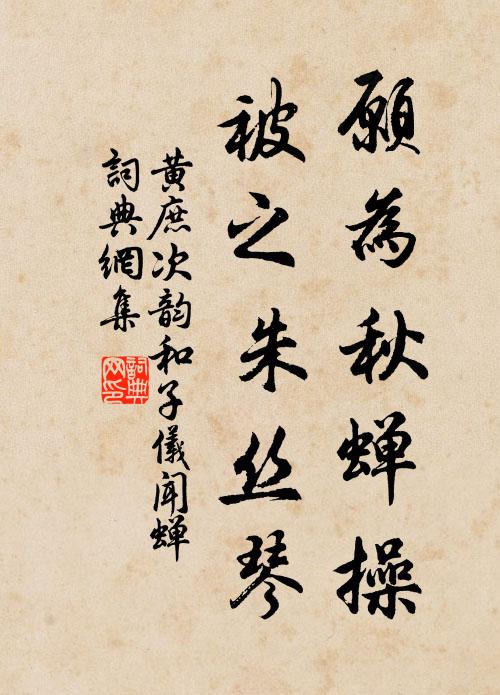 願為秋蟬操
被之朱丝琴
黃庶次韵和子儀闻蝉
詞典網集
詞典网印